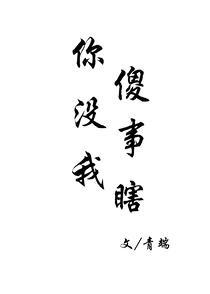 你傻
没事
我瞎
文/青端